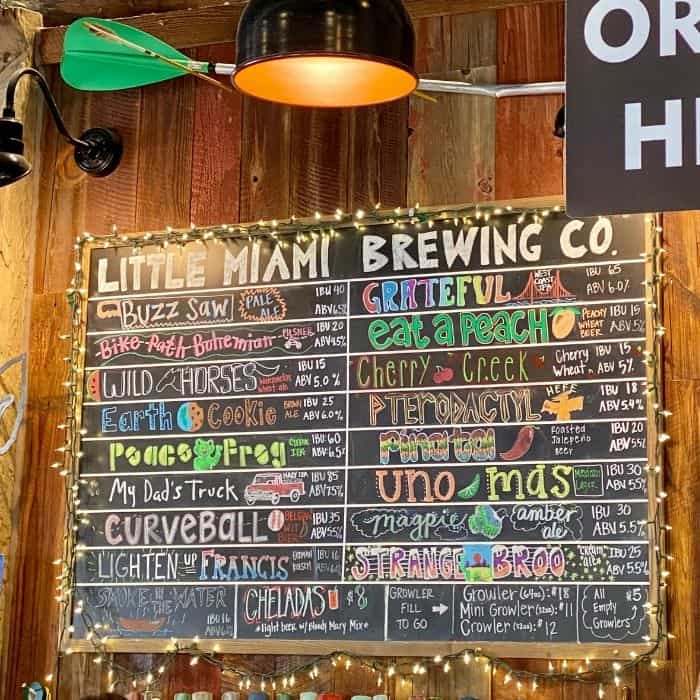 OR
HE
LITTLE MIAMI BREWING CO.
BUZZ SAW PALE ALE IBU 40 ABV 6.5%
Bike Path Bohemian PILSNER IBU 20 ABV 4.5%
WILD HORSES wheat ale IBU 15 ABV 5.0%
Earth Cookie BROWN ALE IBU 25 ABV 6.0%
Peace Frog IPA IBU 60 ABV 6.5%
My Dad's Truck HAZY IPA IBU 85 ABV 7.5%
CURVEBALL BELGIAN WIT BIER IBU 35 ABV 5.5%
LIGHTEN UP FRANCIS GERMAN IBU 16
SMOKE IN THE WATER IBU 16
GRATEFUL WEST COAST IPA IBU 65 ABV 6.0%
eat a PEACH PEACHY WHEAT BEER IBU 15 ABV 5%
Cherry Creek Cherry Wheat IBU 15 ABV 5%
PTERODACTYL HEFE IBU 18 ABV 5.4%
Roasted Jalapeño Beer IBU 20 ABV 5.5%
uno mas Mexican Lager IBU 30 ABV 5.5%
magpie amber ale IBU 30 ABV 5.5%
STRANGE BROO cream ale IBU 25 ABV 5.5%
CHELADAS $8
*light beer w/ Bloody Mary Mix*
GROWLER FILL TO GO →
Growler (64oz): $18
Mini Growler (32oz): $11
Crowler (32oz): $12
All $5
Empty
Growlers